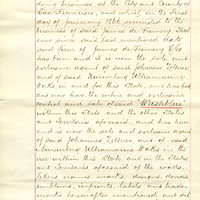 doing business at the City and County of
San Francisco, and which on the first
day of January 1866, succeeded to the
business of said James de Fremery that
ever since said last mentioned date
said firm of James de Fremery & Co
has been and it is now the sole and
exclusive agent of said Johannes Zeltner
and of said Nuremberg Ultramarine
Works in and for this State, and has had
and now has the entire and exclusive
control and sale of said "Washblue"
within this State and the other States
and Territories aforesaid, and has been
and is now the sole and exclusive agent
of said Johannes Zeltner, and of said
Nuremberg Ultramarine Works in the
use within this State and in the States
and Territories aforesaid of the words,
letters, names, marks, devices, devices
emblems, imprints, labels and trade
marks hereinafter mentioned, and set